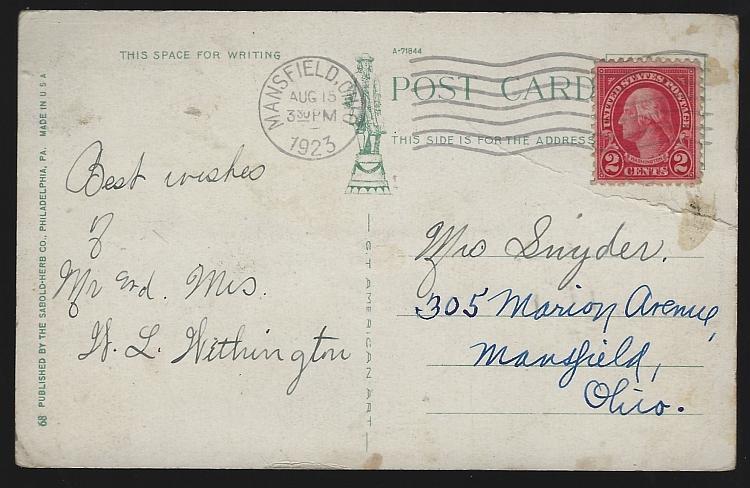 THIS SPACE FOR WRITING
A-71844
MANSFIELD, OHIO
AUG 15
330 PM
1923
POST CARD
THIS SIDE IS FOR THE ADDRESS
UNITED STATES POSTAGE
WASHINGTON
2 CENTS 2
Best wishes
of
Mr and. Mrs.
W. L. Withington
Mrs Snyder.
305 Marion Avenue,
Mansfield,
Ohio.
68 PUBLISHED BY THE SABOLD-HERB CO., PHILADELPHIA, PA. MADE IN U S A
AMERICAN ART